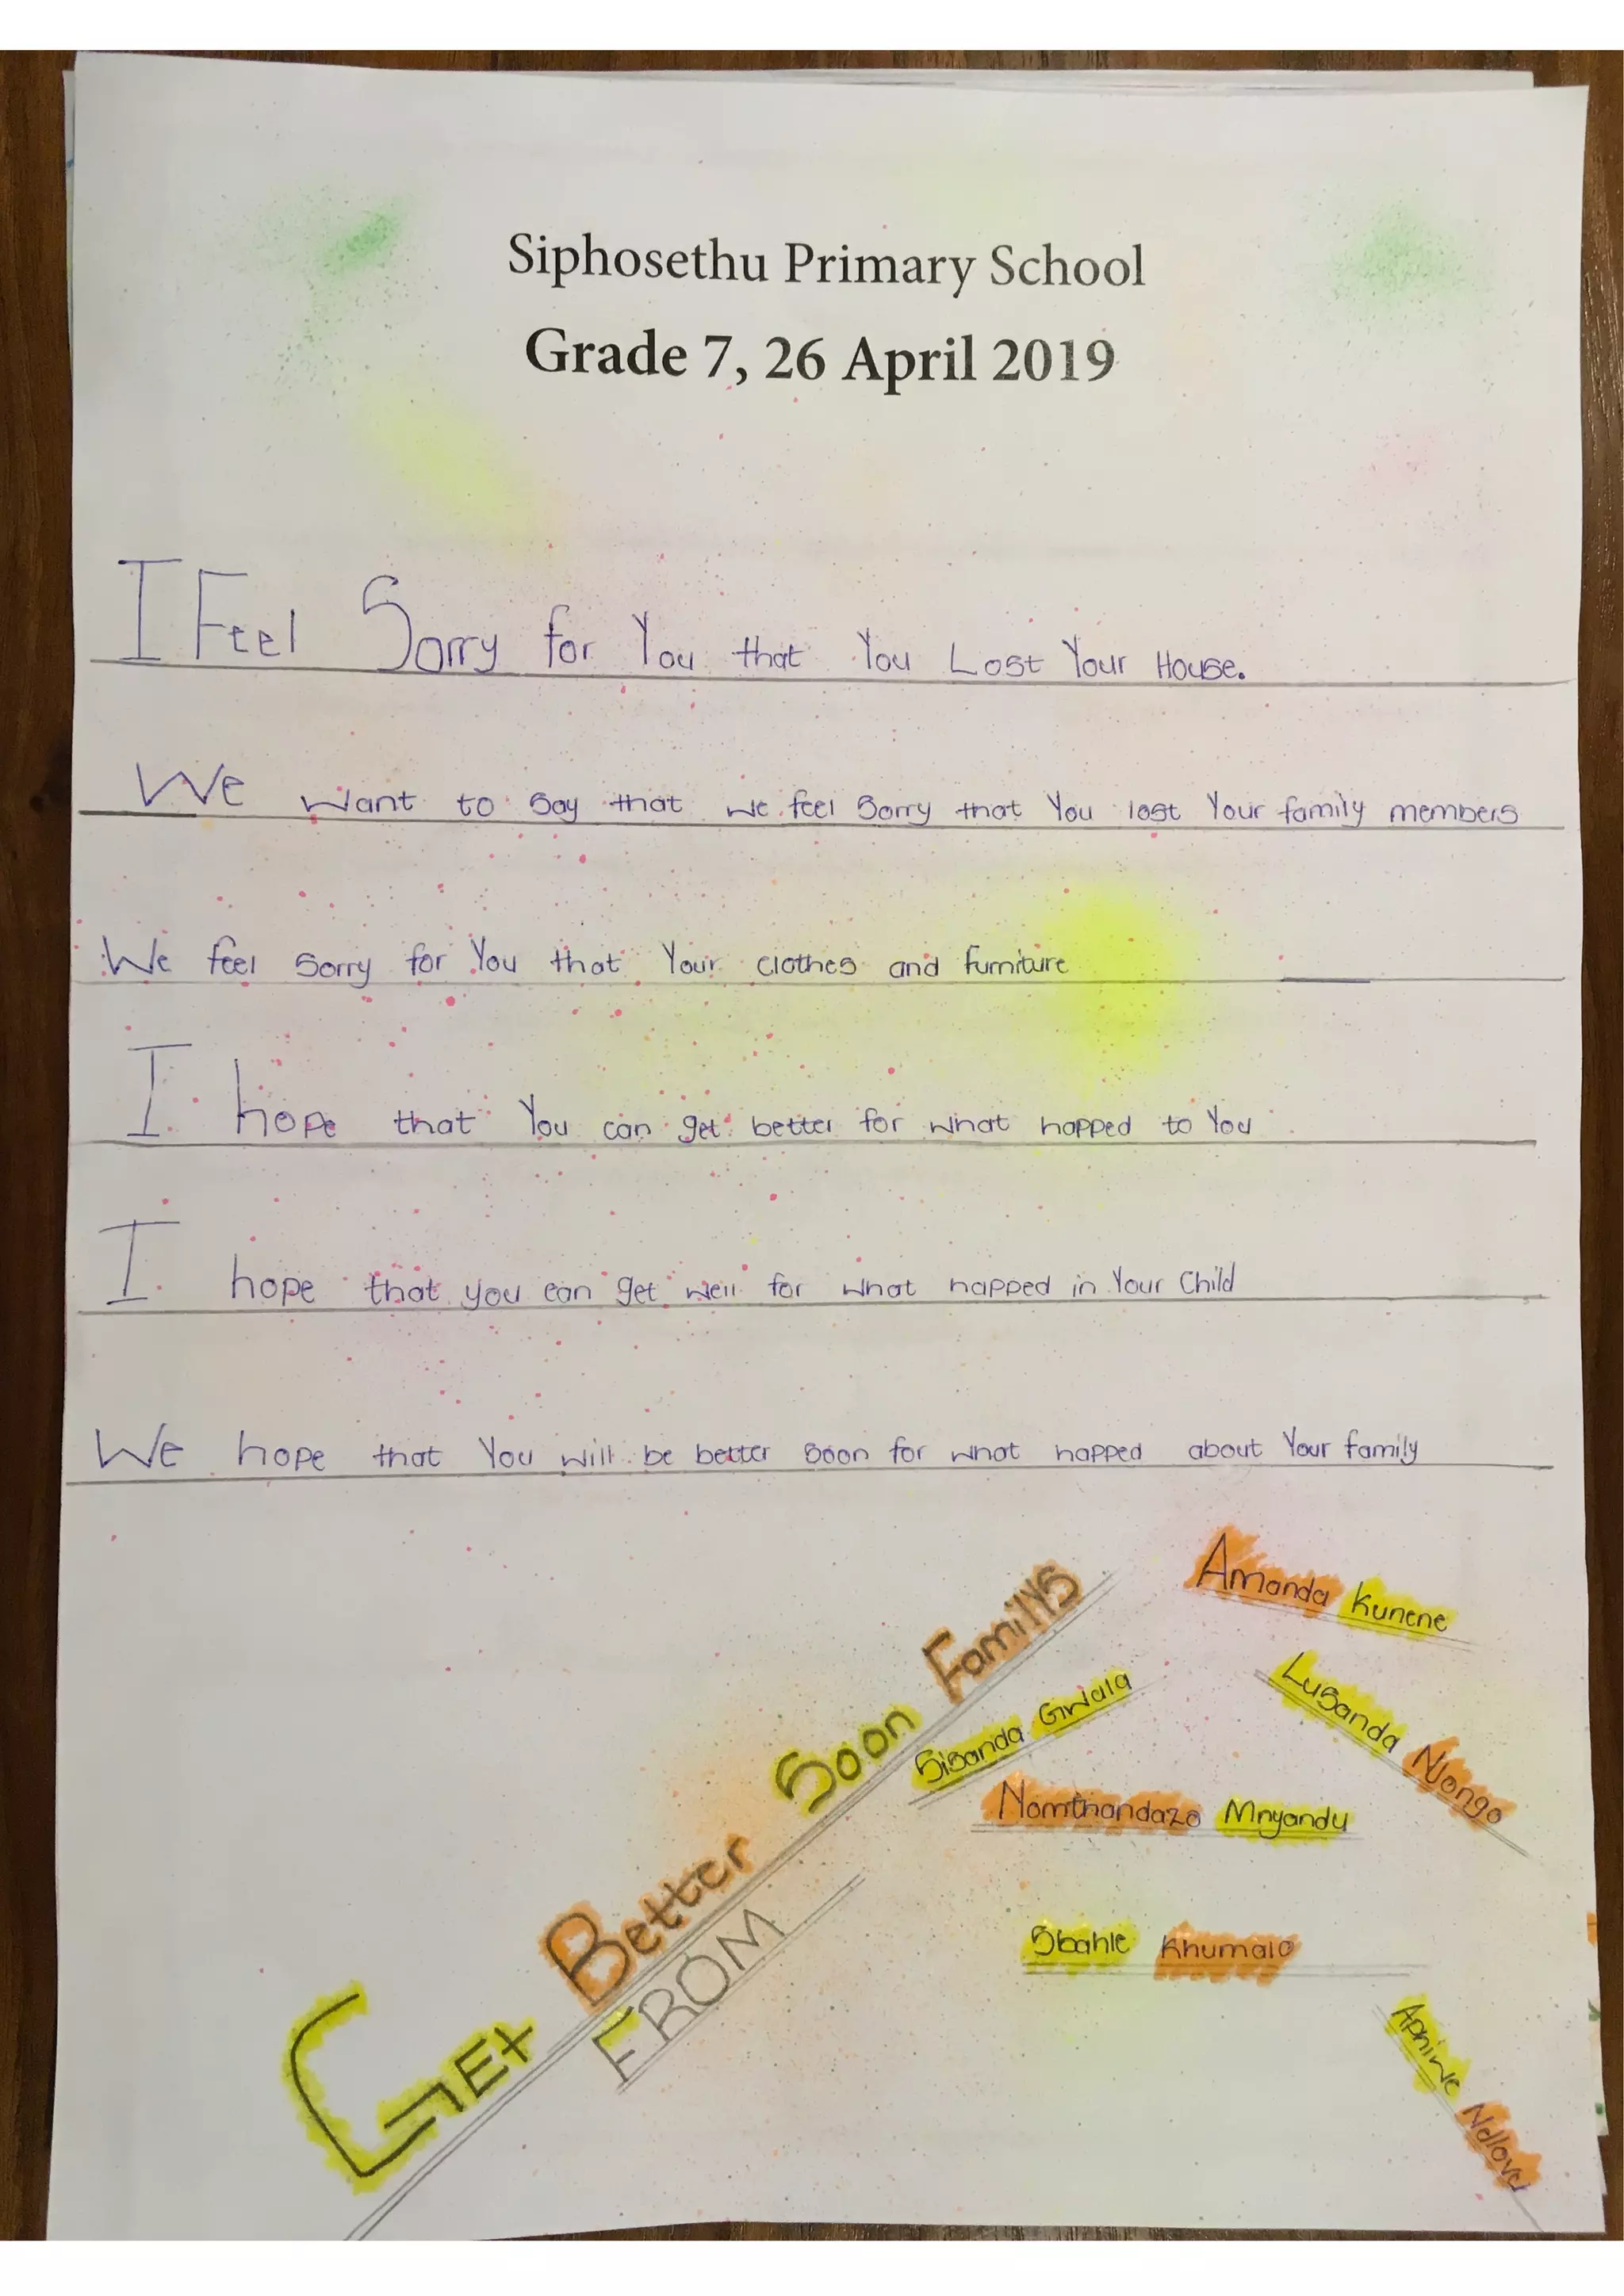 Siphosethu Primary School
Grade 7, 26 April 2019
I Feel Sorry for You that You Lost Your House.
We want to say that we feel sorry that You lost Your family members
We feel sorry for You that Your clothes and furniture
I hope that You can get better for what happed to You
I hope that you can get well for what happed in Your Child
We hope that You will be better soon for what happed about Your family
GEt Better Soon Familys
FROM
Amanda Kunene
Lusanda Njongo
Sisanda Gwala
Nomthandazo Mnyandu
Sbahle Khumalo
Aphiwe Ndlovu